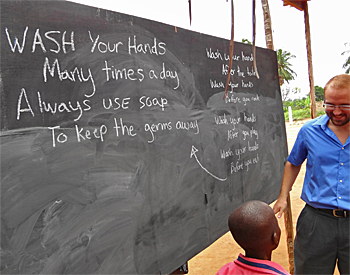 WASH Your Hands
Many times a day
Always use soap
To keep the germs away
Wash your hands
After the toilet
Wash your hands
Before you cook
Wash your hands
After you play
Wash your hands
Before you eat